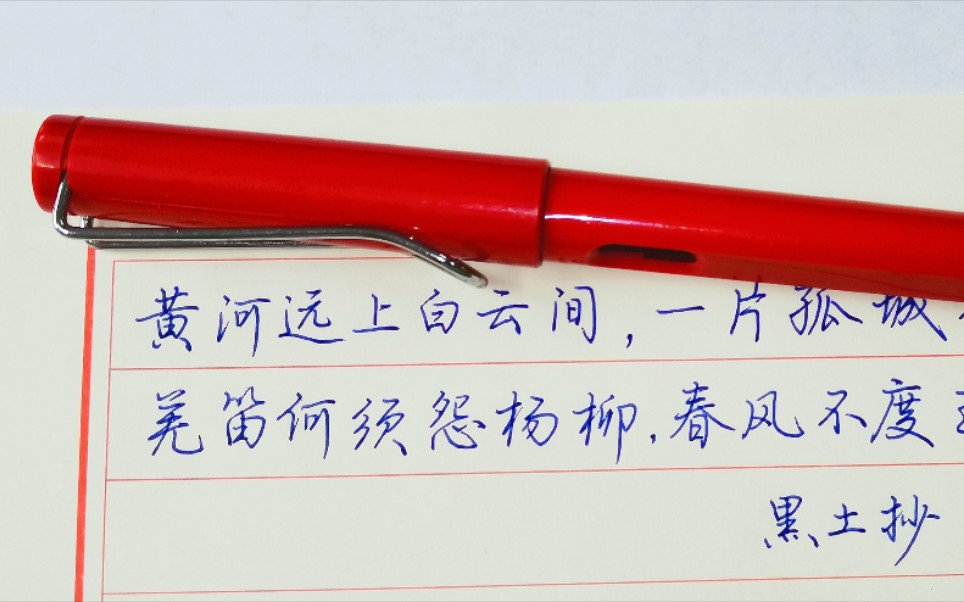 黄河远上白云间,一片孤城
羌笛何须怨杨柳.春风不度
黑土抄